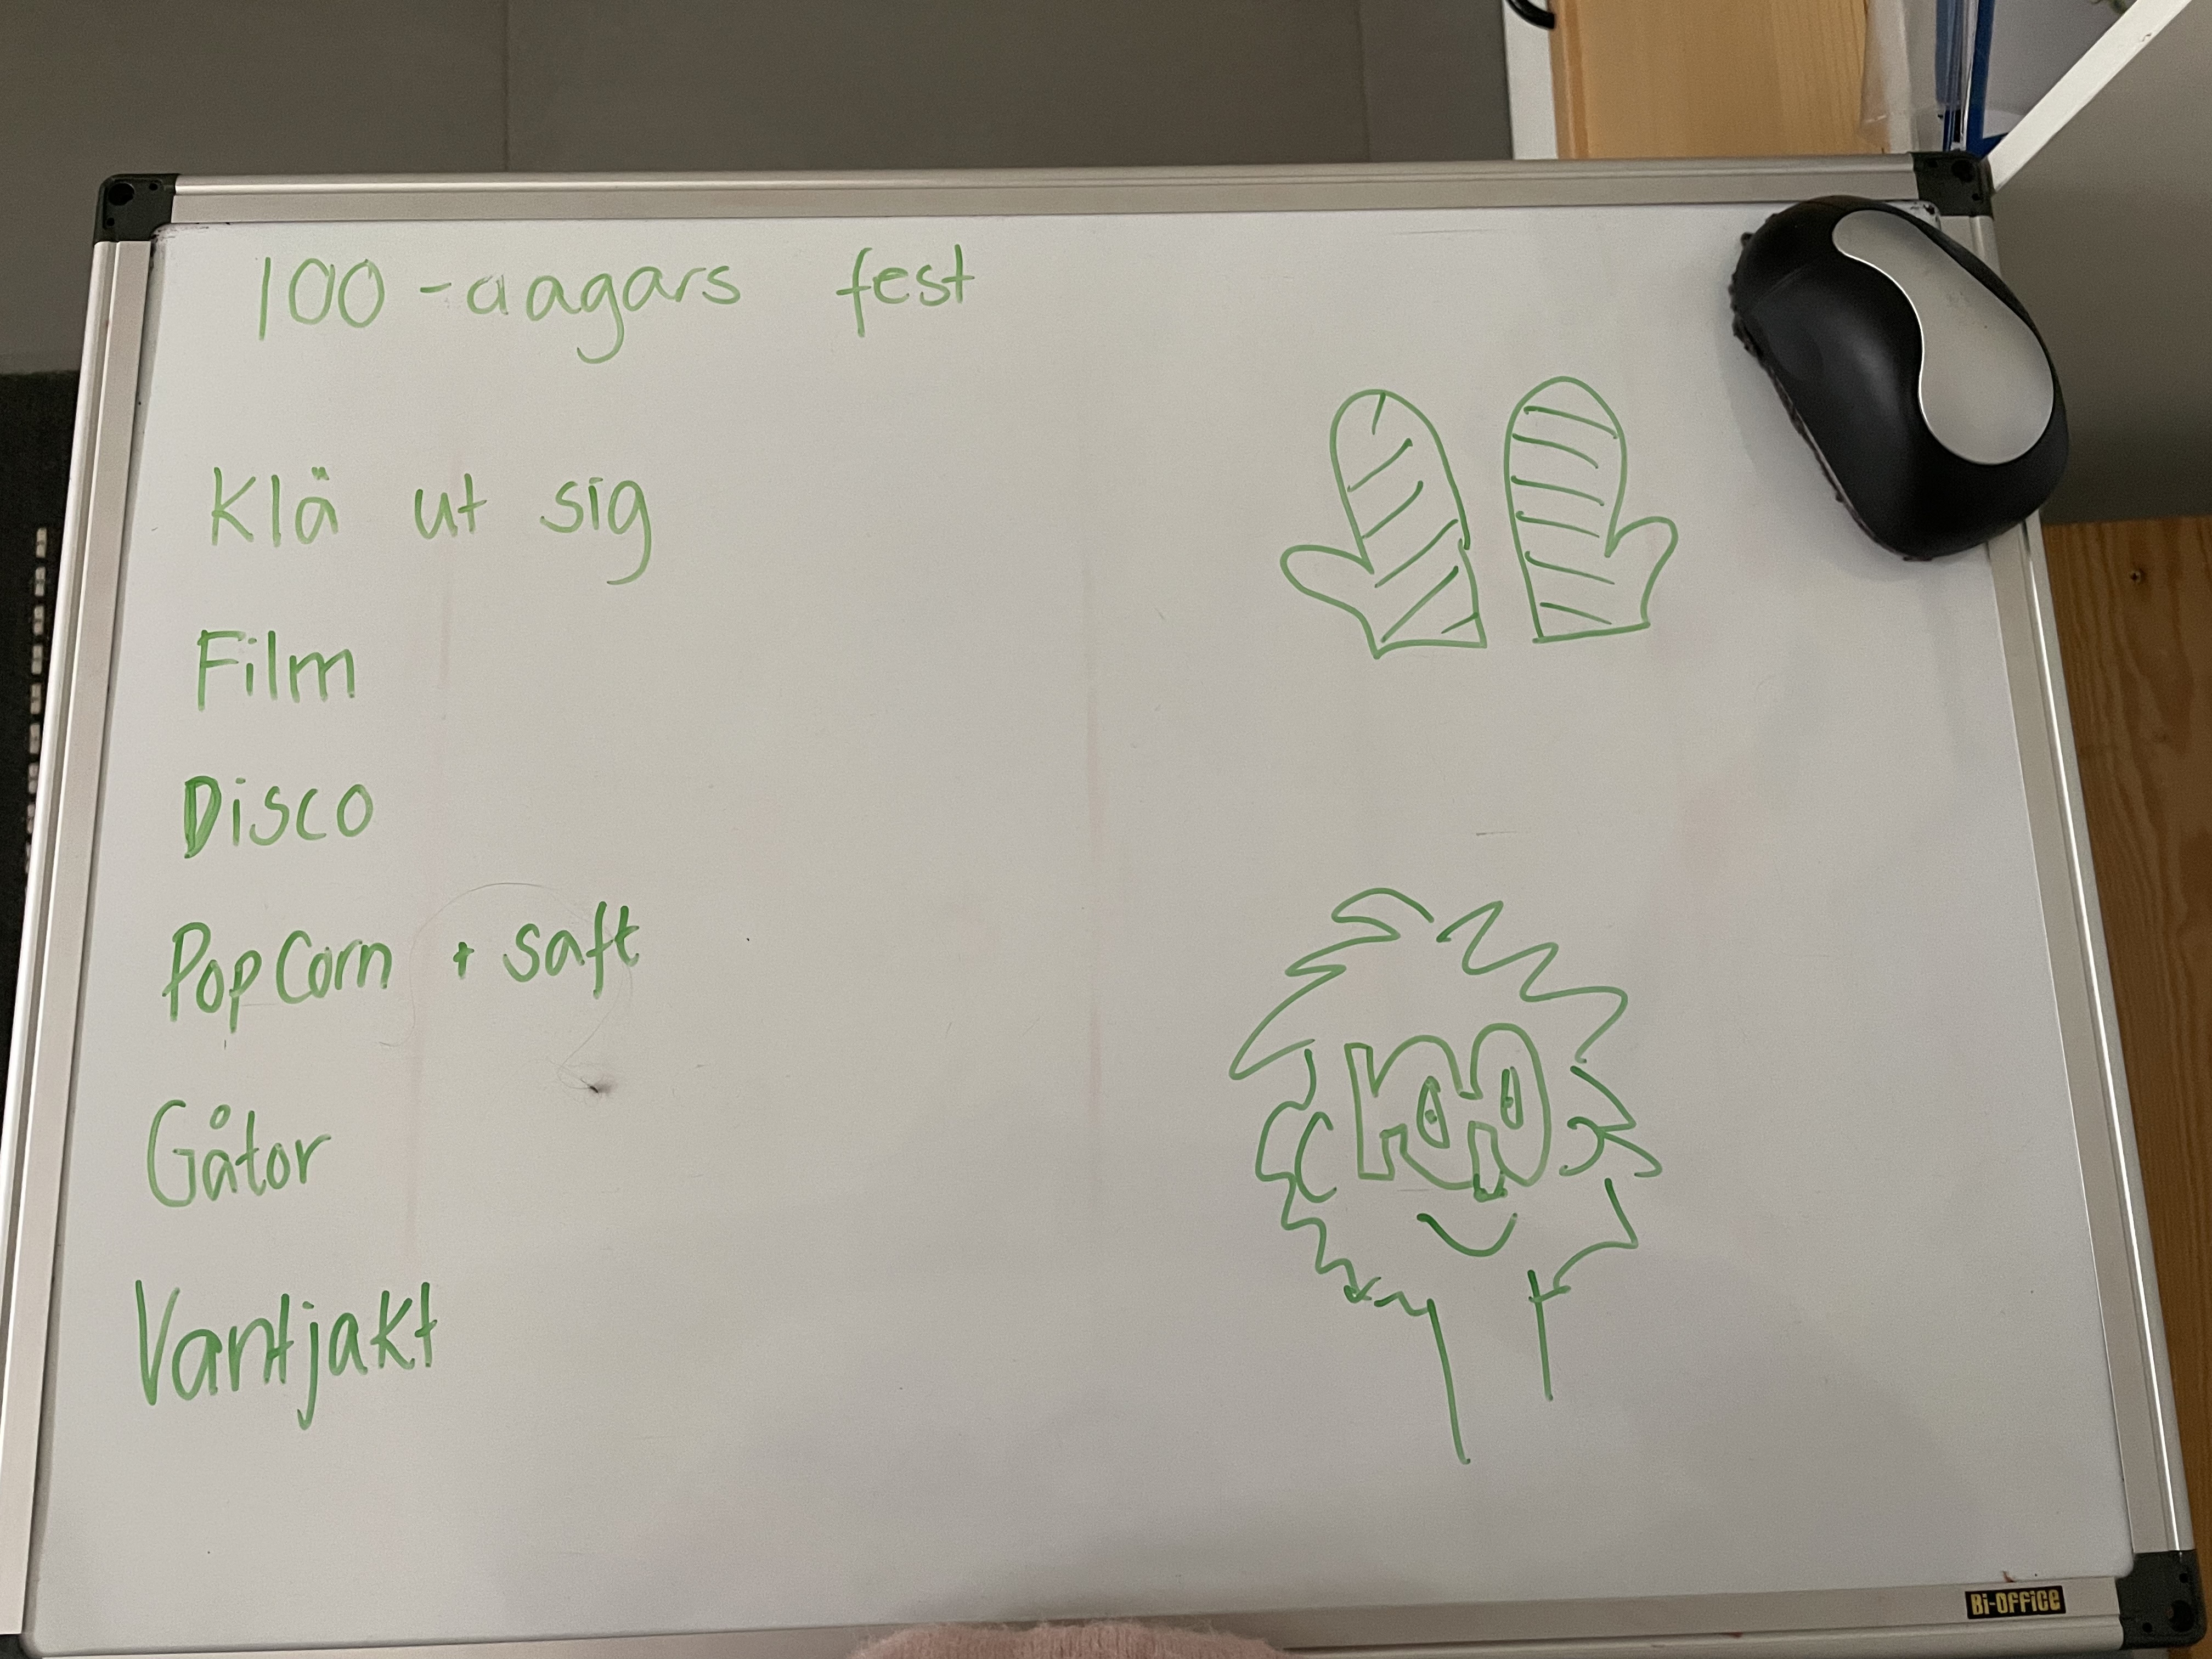 100-dagars fest
Klä ut sig
Film
Disco
PopCorn + saft
Gåtor
Vantjakt
100
Bi-OFFiCE